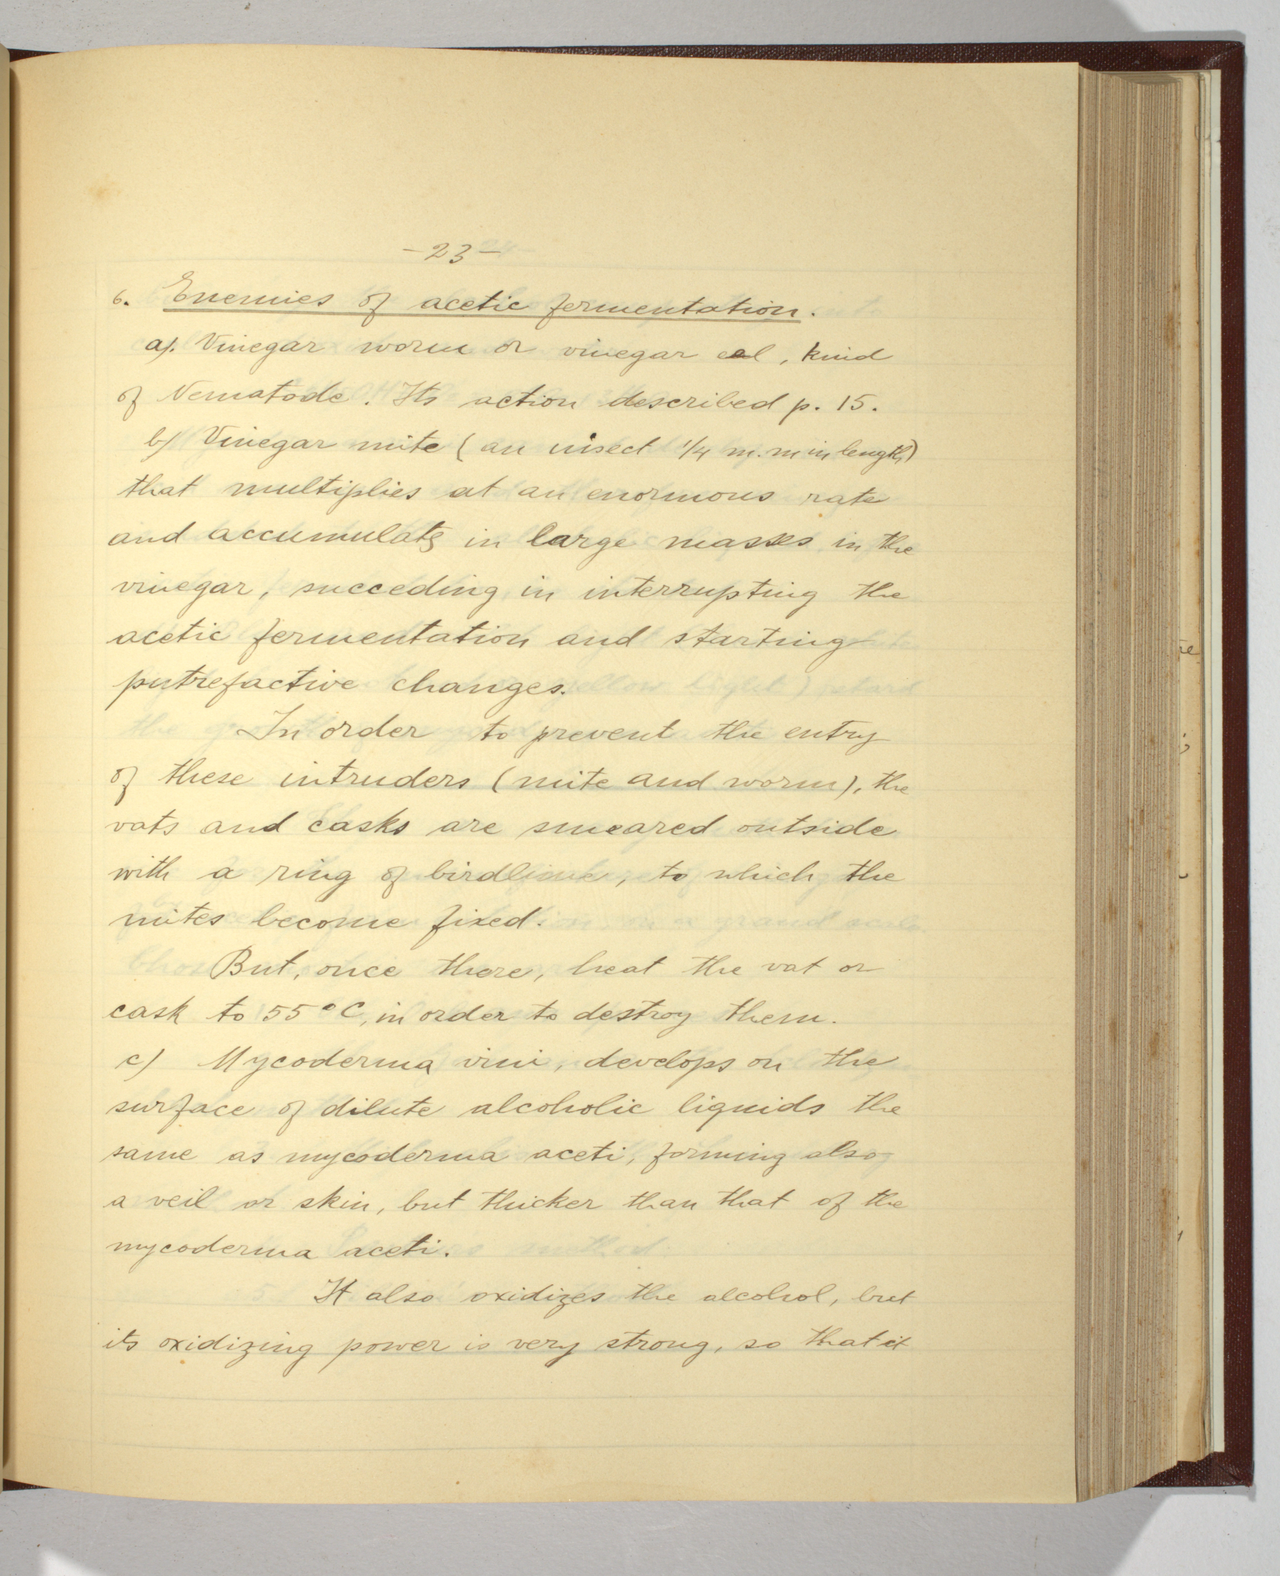 -23-
6. Enemies of acetic fermentation.
a). Vinegar worm or vinegar eel, kind
of Nematode. Its action described p. 15.
b) Vinegar mite (an insect 1/4 m.m in length)
that multiplies at an enormous rate
and accumulats in large masses in the
vinegar, succeding in interrupting the
acetic fermentation and starting
putrefactive changes.
In order to prevent the entry
of these intruders (mite and worm), the
vats and casks are smeared outside
with a ring of birdlime, to which the
mites become fixed.
But, once there, heat the vat or
cask to 55°C, in order to destroy them.
c) Mycoderma vini, develops on the
surface of dilute alcoholic liquids the
same as mycoderma aceti, forming also
a veil or skin, but thicker than that of the
mycoderma aceti.
It also oxidizes the alcohol, but
its oxidizing power is very strong, so that it